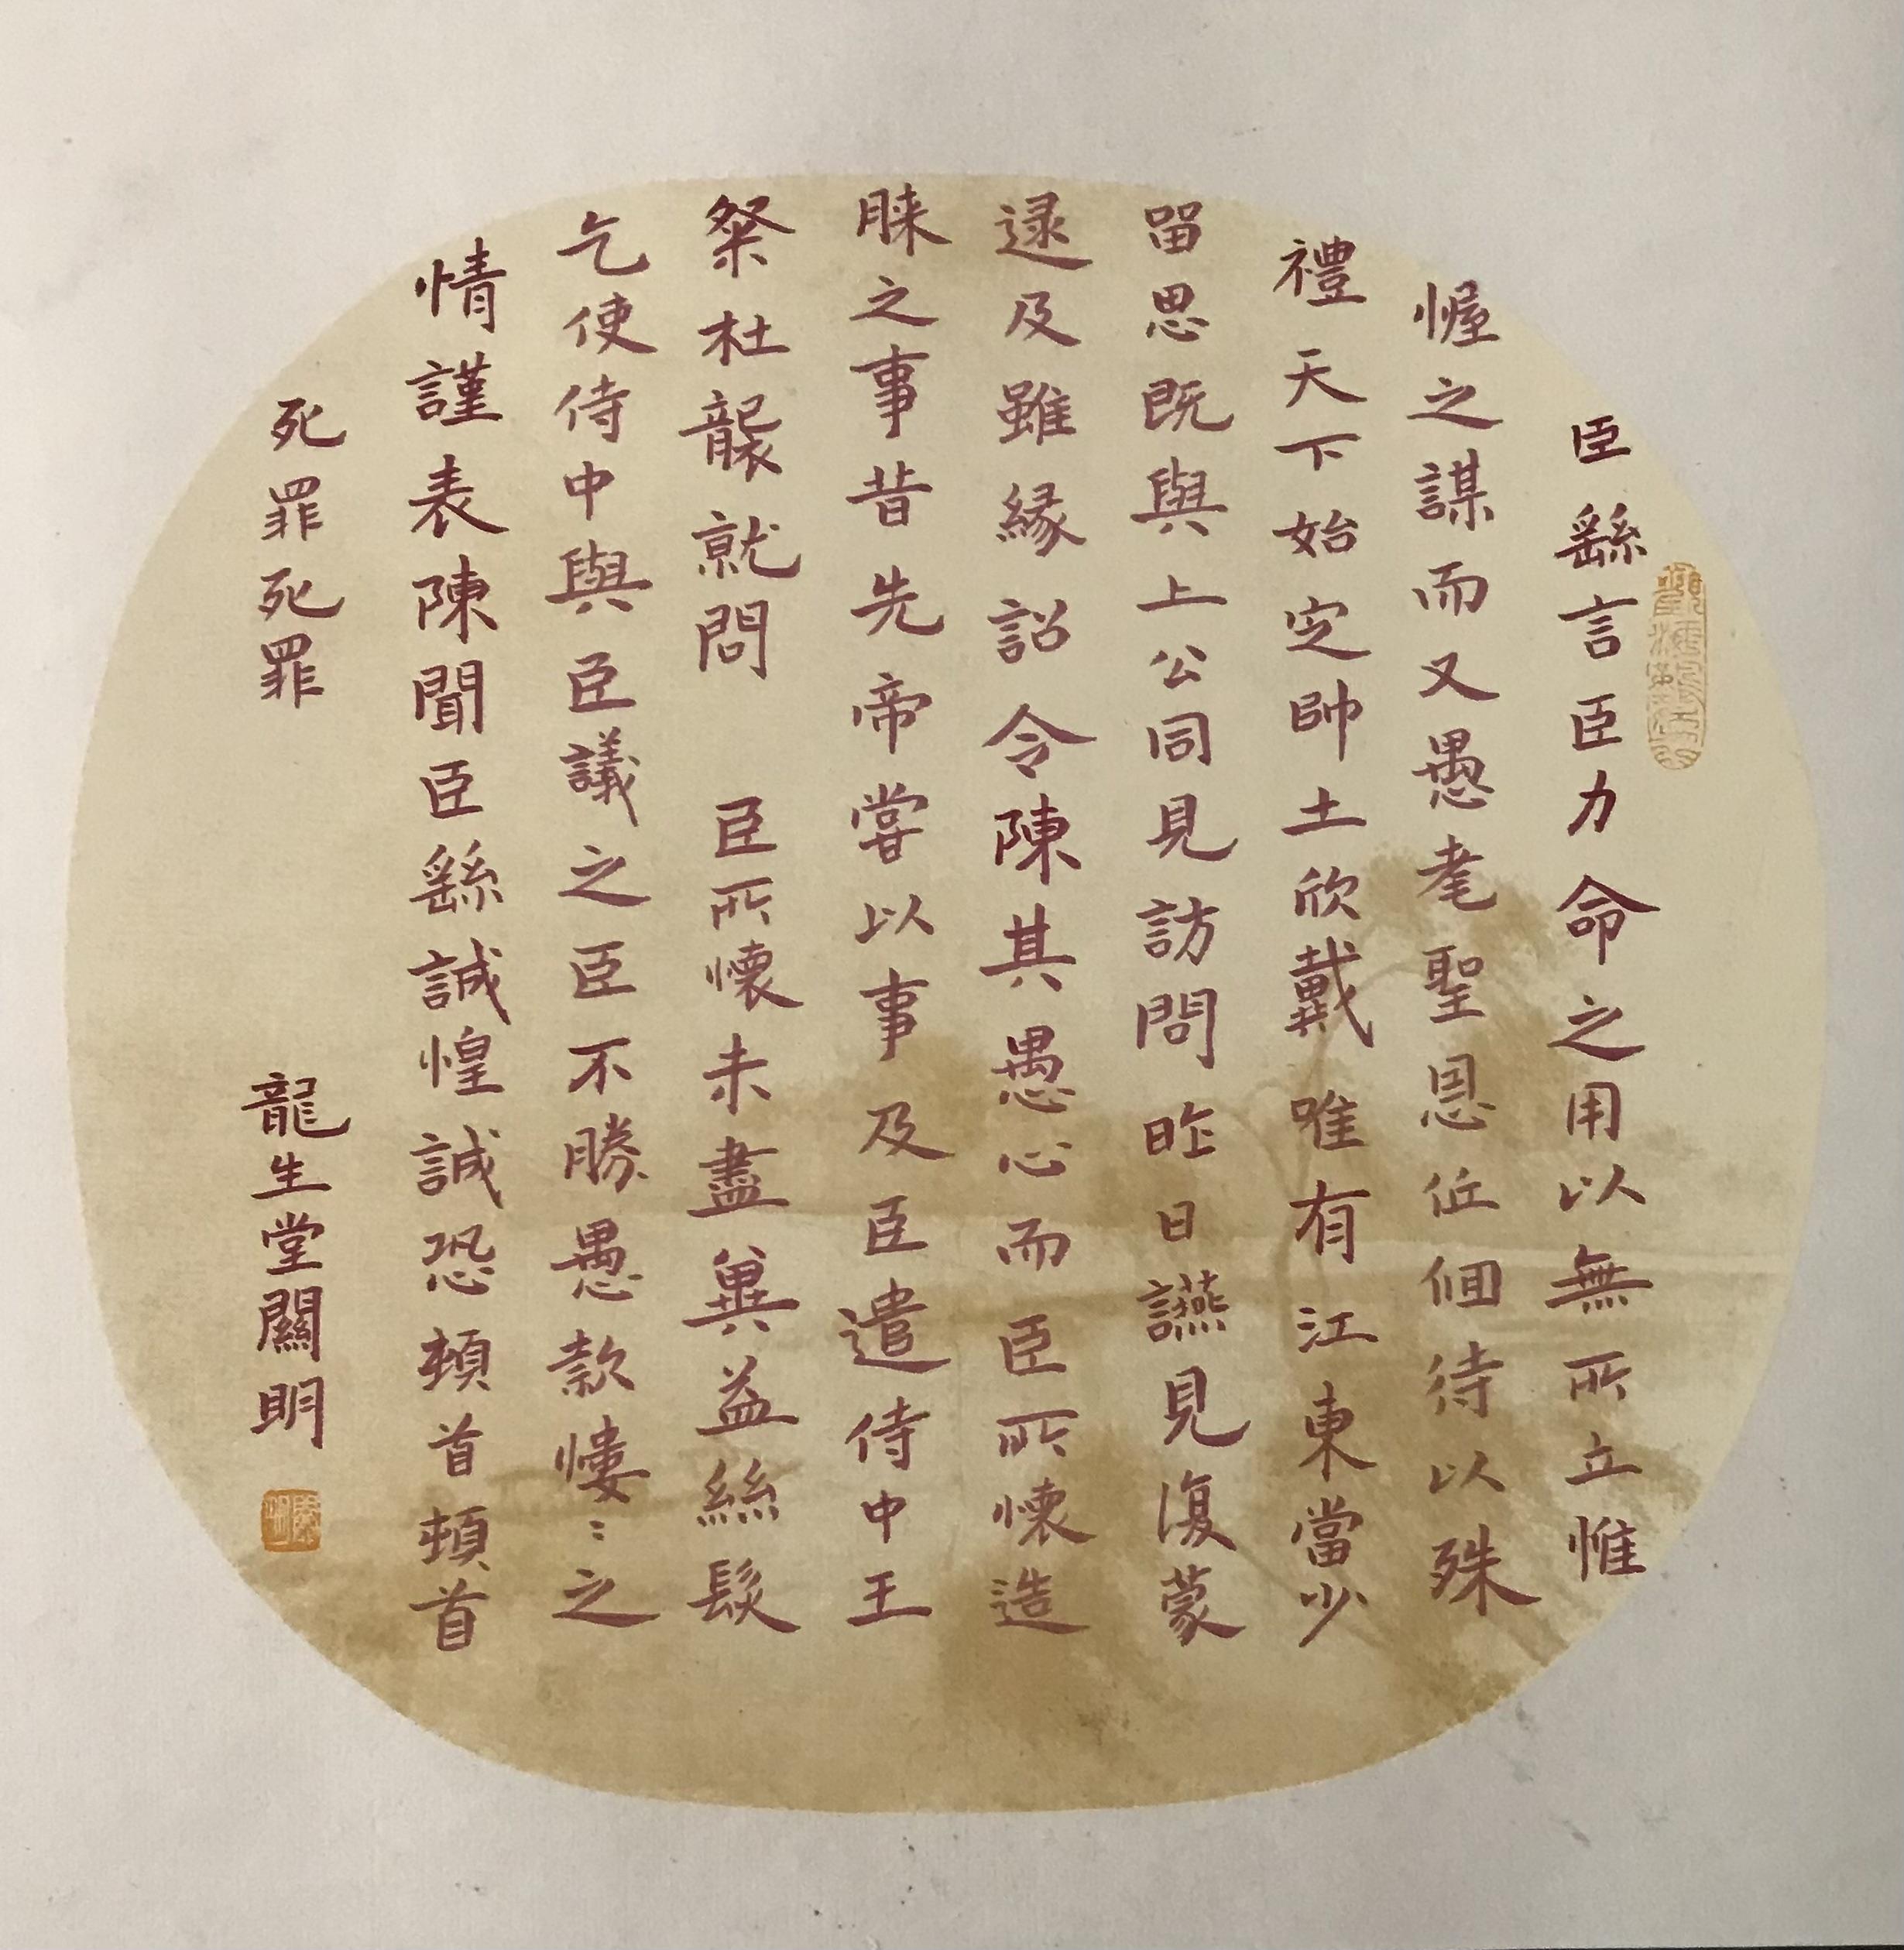 臣繇言臣力命之用以無所立惟
幄之謀而又愚耄聖恩低佪待以殊
禮天下始定帥土欣戴唯有江東當少
留思既與上公同見訪問昨日讌見復蒙
逮及雖緣詔令陳其愚心而臣所懷造
膝之事昔先帝嘗以事及臣遣侍中王
粲杜襲就問 臣所懷未盡冀益絲髮
乞使侍中與臣議之臣不勝愚款慺〻之
情謹表陳聞臣繇誠惶誠恐頓首頓首
死罪死罪
龍生堂關明